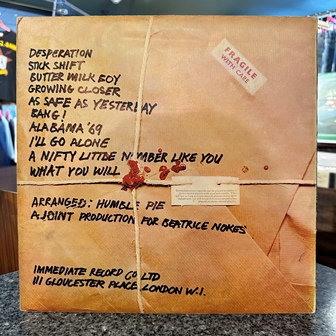 FRAGILE
WITH CARE
DESPERATION
STICK SHIFT
BUTTER MILK BOY
GROWING CLOSER
AS SAFE AS YESTERDAY
BANG!
ALABAMA '69
I'LL GO ALONE
A NIFTY LITTLE NUMBER LIKE YOU
WHAT YOU WILL
ARRANGED: HUMBLE PIE
A JOINT PRODUCTION FOR BEATRICE NOKES
IMMEDIATE RECORD CO LTD
111 GLOUCESTER PLACE, LONDON W.1.